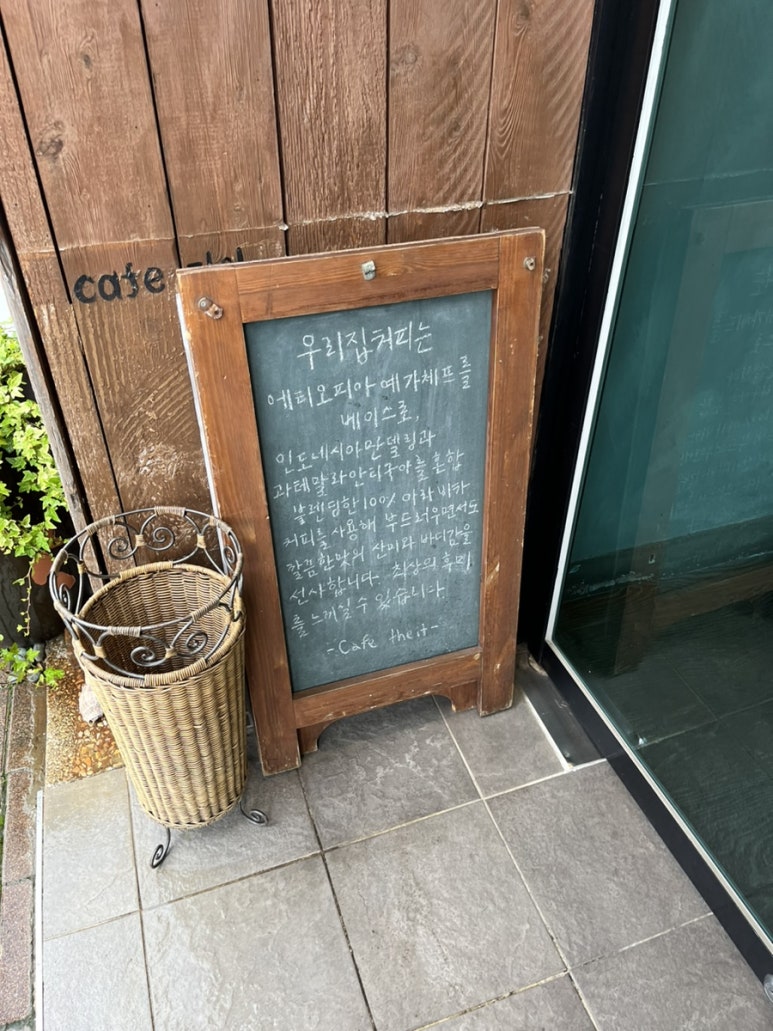 cafe
우리집커피는
에티오피아 예가체프를
베이스로,
인도네시아만델링과
과테말라안티구아를 혼합
블렌딩한 100% 아라비카
커피를 사용해 부드러우면서도
깔끔한맛의 산미와 바디감을
선사합니다. 최상의
를 느끼실 수 있습니다
-Cafe theit-